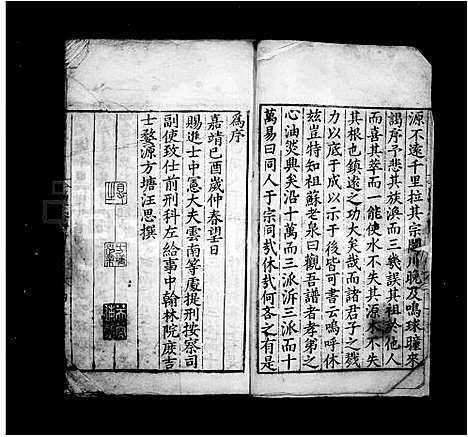 源不遠千里拉其宗閭川晚及鳴球瞳來
謁序予悲其族渙而三幾誤其祖於他人
而喜其萃而一能使水不失其源木不失
其根也鎮遠之功大矣哉而諸君子之戮
力以底于成以示于後皆可書云嗚呼休
玆豈特知祖蘇老泉曰觀吾譜者孝弟之
心油然興矣沿十萬而三派泝三派而十
萬易曰同人于宗同哉休哉何吝之有是
為序
嘉靖己酉歲仲春望日
賜進士中憲大夫雲南等處提刑按察司
副使致仕前刑科左給事中翰林院庶吉
士婺源方塘汪思撰